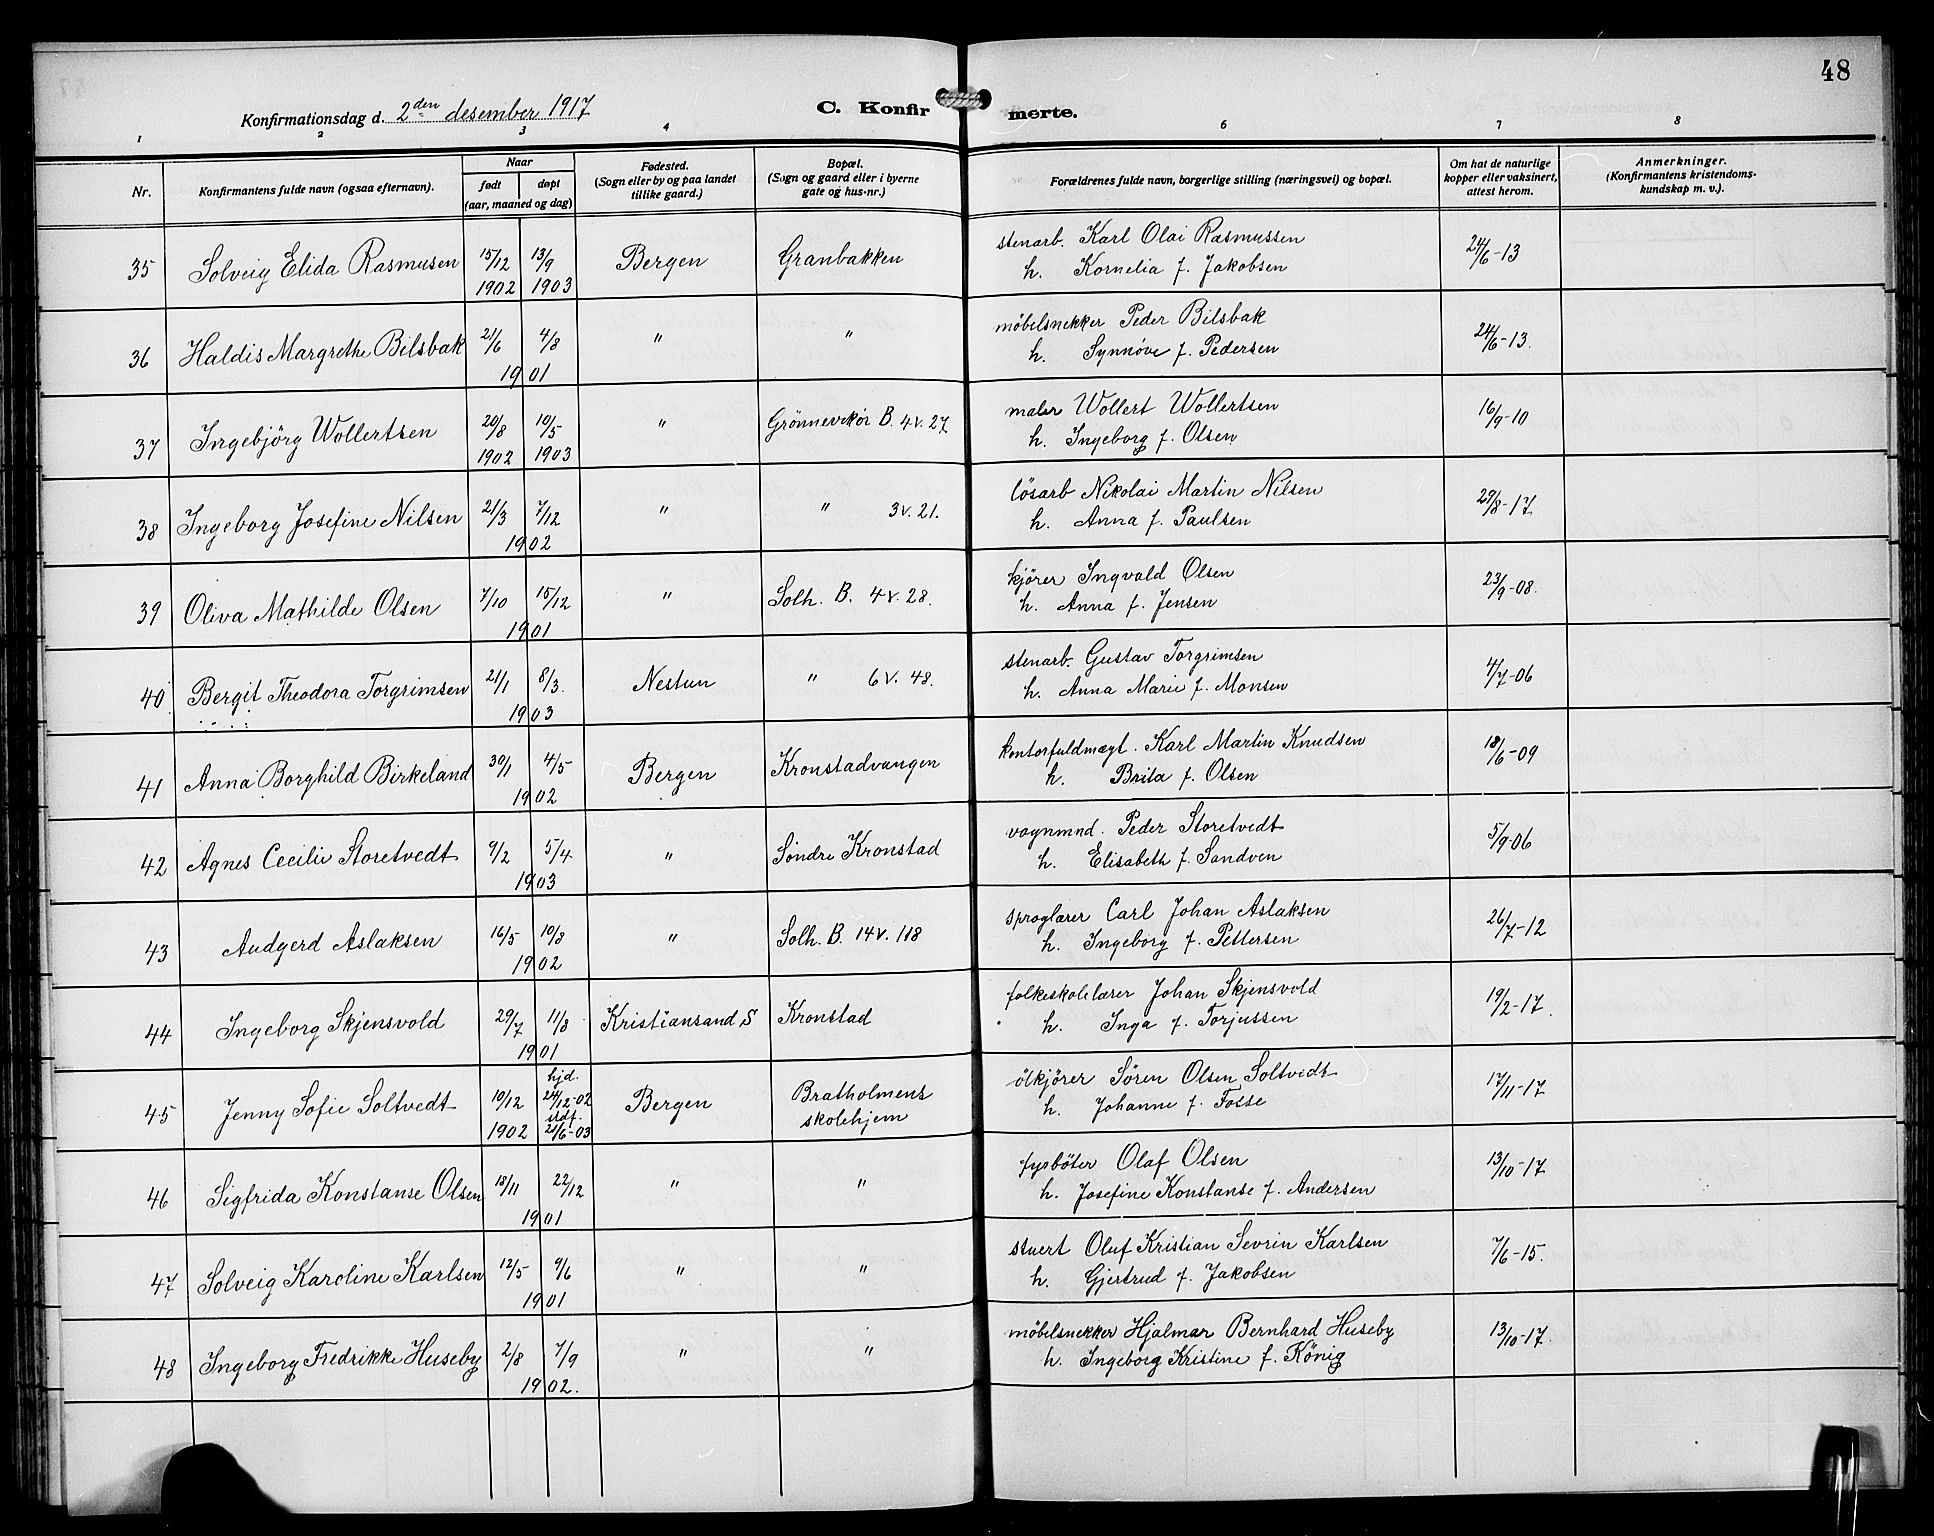 48
Konfirmationsdag d. 2den desember 1917
C. Konfirmerte.
1 2 3 4 6 7 8
Nr.
Konfirmantens fulde navn (ogsaa efternavn).
Naar
født døpt
(aar, maaned og dag)
Fødested.
(Sogn eller by og paa landet
tillike gaard.)
Bopæl.
(Sogn og gaard eller i byerne
gate og hus-nr.)
Forældrenes fulde navn, borgerlige stilling (næringsvei) og bopæl.
Om hat de naturlige
kopper eller vaksinert,
attest herom.
Anmerkninger.
(Konfirmantens kristendoms-
kundskap m. v.).
35 Solveig Elida Rasmusen 15/12 1902 13/9 1903 Bergen Granbakken
stenarb. Karl Olai Rasmussen
h. Kornelia f. Jakobsen
24/6-13
36 Haldis Margrethe Bilsbak 21/6 4/8 1901 " "
möbelsnekker Peder Bilsbak
h. Synnöve f. Pedersen
24/6-13.
37 Ingebjörg Wollertsen 20/8 1902 10/5 1903 " Grönnevikör B. 4 v. 27
maler Wollert Wollertsen
h. Ingeborg f. Olsen
16/9-10
38 Ingeborg Josefine Nilsen 21/3 7/12 1902 " " 3 v. 21.
lösarb Nikolai Martin Nilsen
h. Anna f. Paulsen
29/8-17
39 Oliva Mathilde Olsen 7/10 15/12 1901 " Solh. B. 4 v. 28.
kjörer Ingvald Olsen
h. Anna f. Jensen
23/9-08.
40 Bergit Theodora Torgrimsen 21/1 8/3. 1903 Nestun " 6 v. 48.
stenarb. Gustav Torgrimsen
h. Anna Marie f. Monsen
4/7-06
41 Anna Borghild Birkeland 30/1 4/5 1902 Bergen Kronstadvangen
kontorfuldmægt. Karl Martin Knudsen
h. Brita f. Olsen
18/6-09
42 Agnes Cecilie Storetvedt 9/2 5/4 1903 " Söndre Kronstad
vognmnd. Peder Storetvedt
h. Elisabeth f. Sandven
5/9-06
43 Audgerd Aslaksen 16/5 10/8 1902 " Solh. B. 14 v. 118
sproglærer Carl Johan Aslaksen
h. Ingeborg f. Pettersen
26/7-12
44 Ingeborg Skjensvold 29/7 11/8 1901 Kristiansand S Kronstad
folkeskolelærer Johan Skjensvold
h. Inga f. Torjussen
19/2-17.
45 Jenny Sofie Soltvedt 19/12 1902 hjd. 24/12-02 stdf. 21/6-03 Bergen Bratholmens
skolehjem
ölkjörer Sören Olsen Soltvedt
h. Johanne f. Fosse
17/11-17
46 Sigfrida Konstanse Olsen 18/11 22/12 1901 " "
fyrböter Olaf Olsen
h. Josefine Konstanse f. Andersen
13/10-17
47 Solveig Karoline Karlsen 12/5 9/6 1901 " "
stuert Oluf Kristian Sevrin Karlsen
h. Gjertrud f. Jakobsen
7/6-15.
48 Ingeborg Fredrikke Huseby 2/8 7/9 1902. " "
möbelsnekker Hjalmar Bernhard Huseby
h. Ingeborg Kristine f. König
13/10-17.